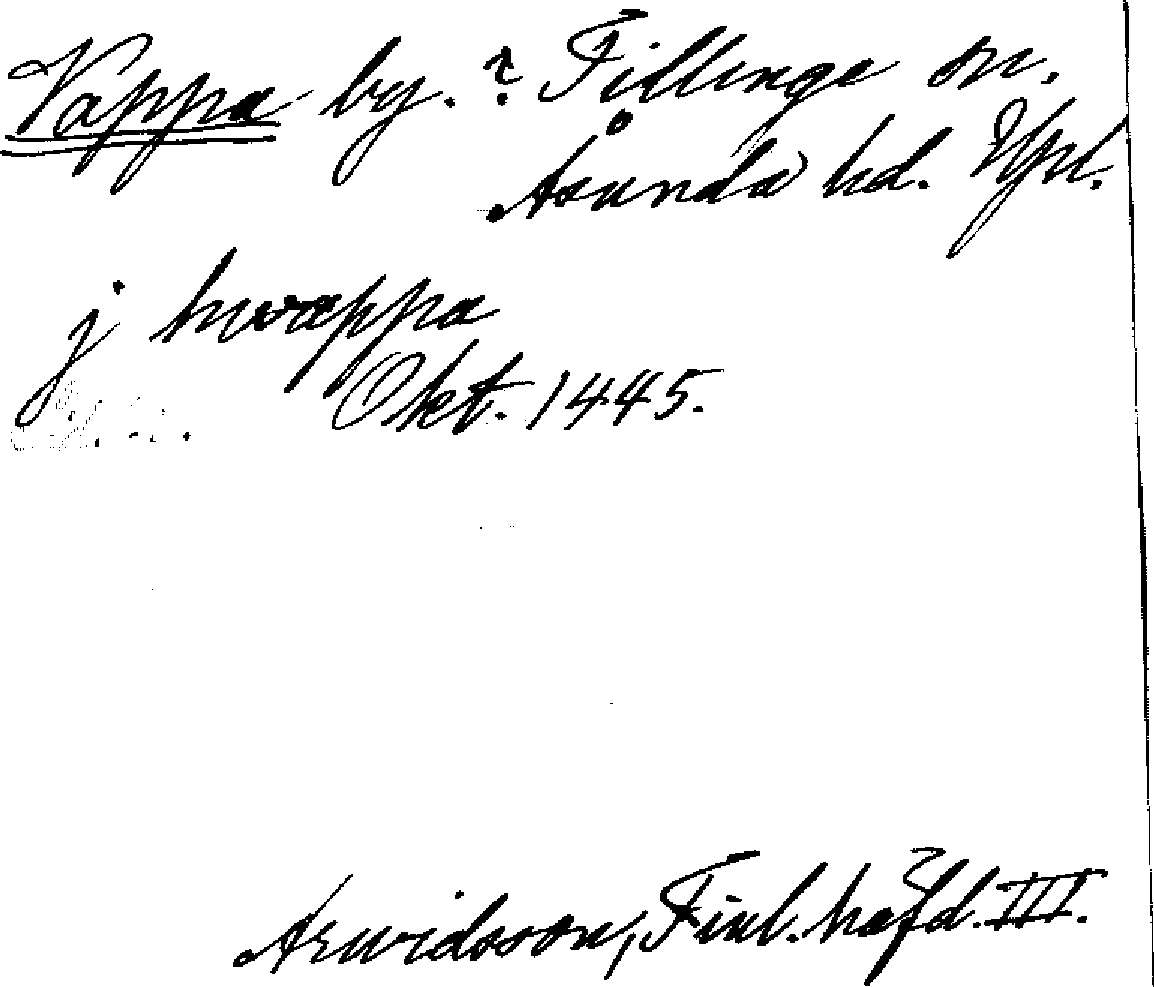 Väppa by.? Tillinge sn.
Åsunda hd. Upl.
j hwæppa
Okt. 1445.
Arwidsson, Finl. häfd. III.